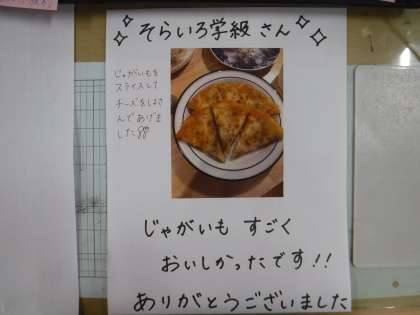 そらいろ学級 さん
じゃがいもを
スライスして
チーズをはさ
んであげま
した
じゃがいも すごく
おいしかったです!!
ありがとうございました